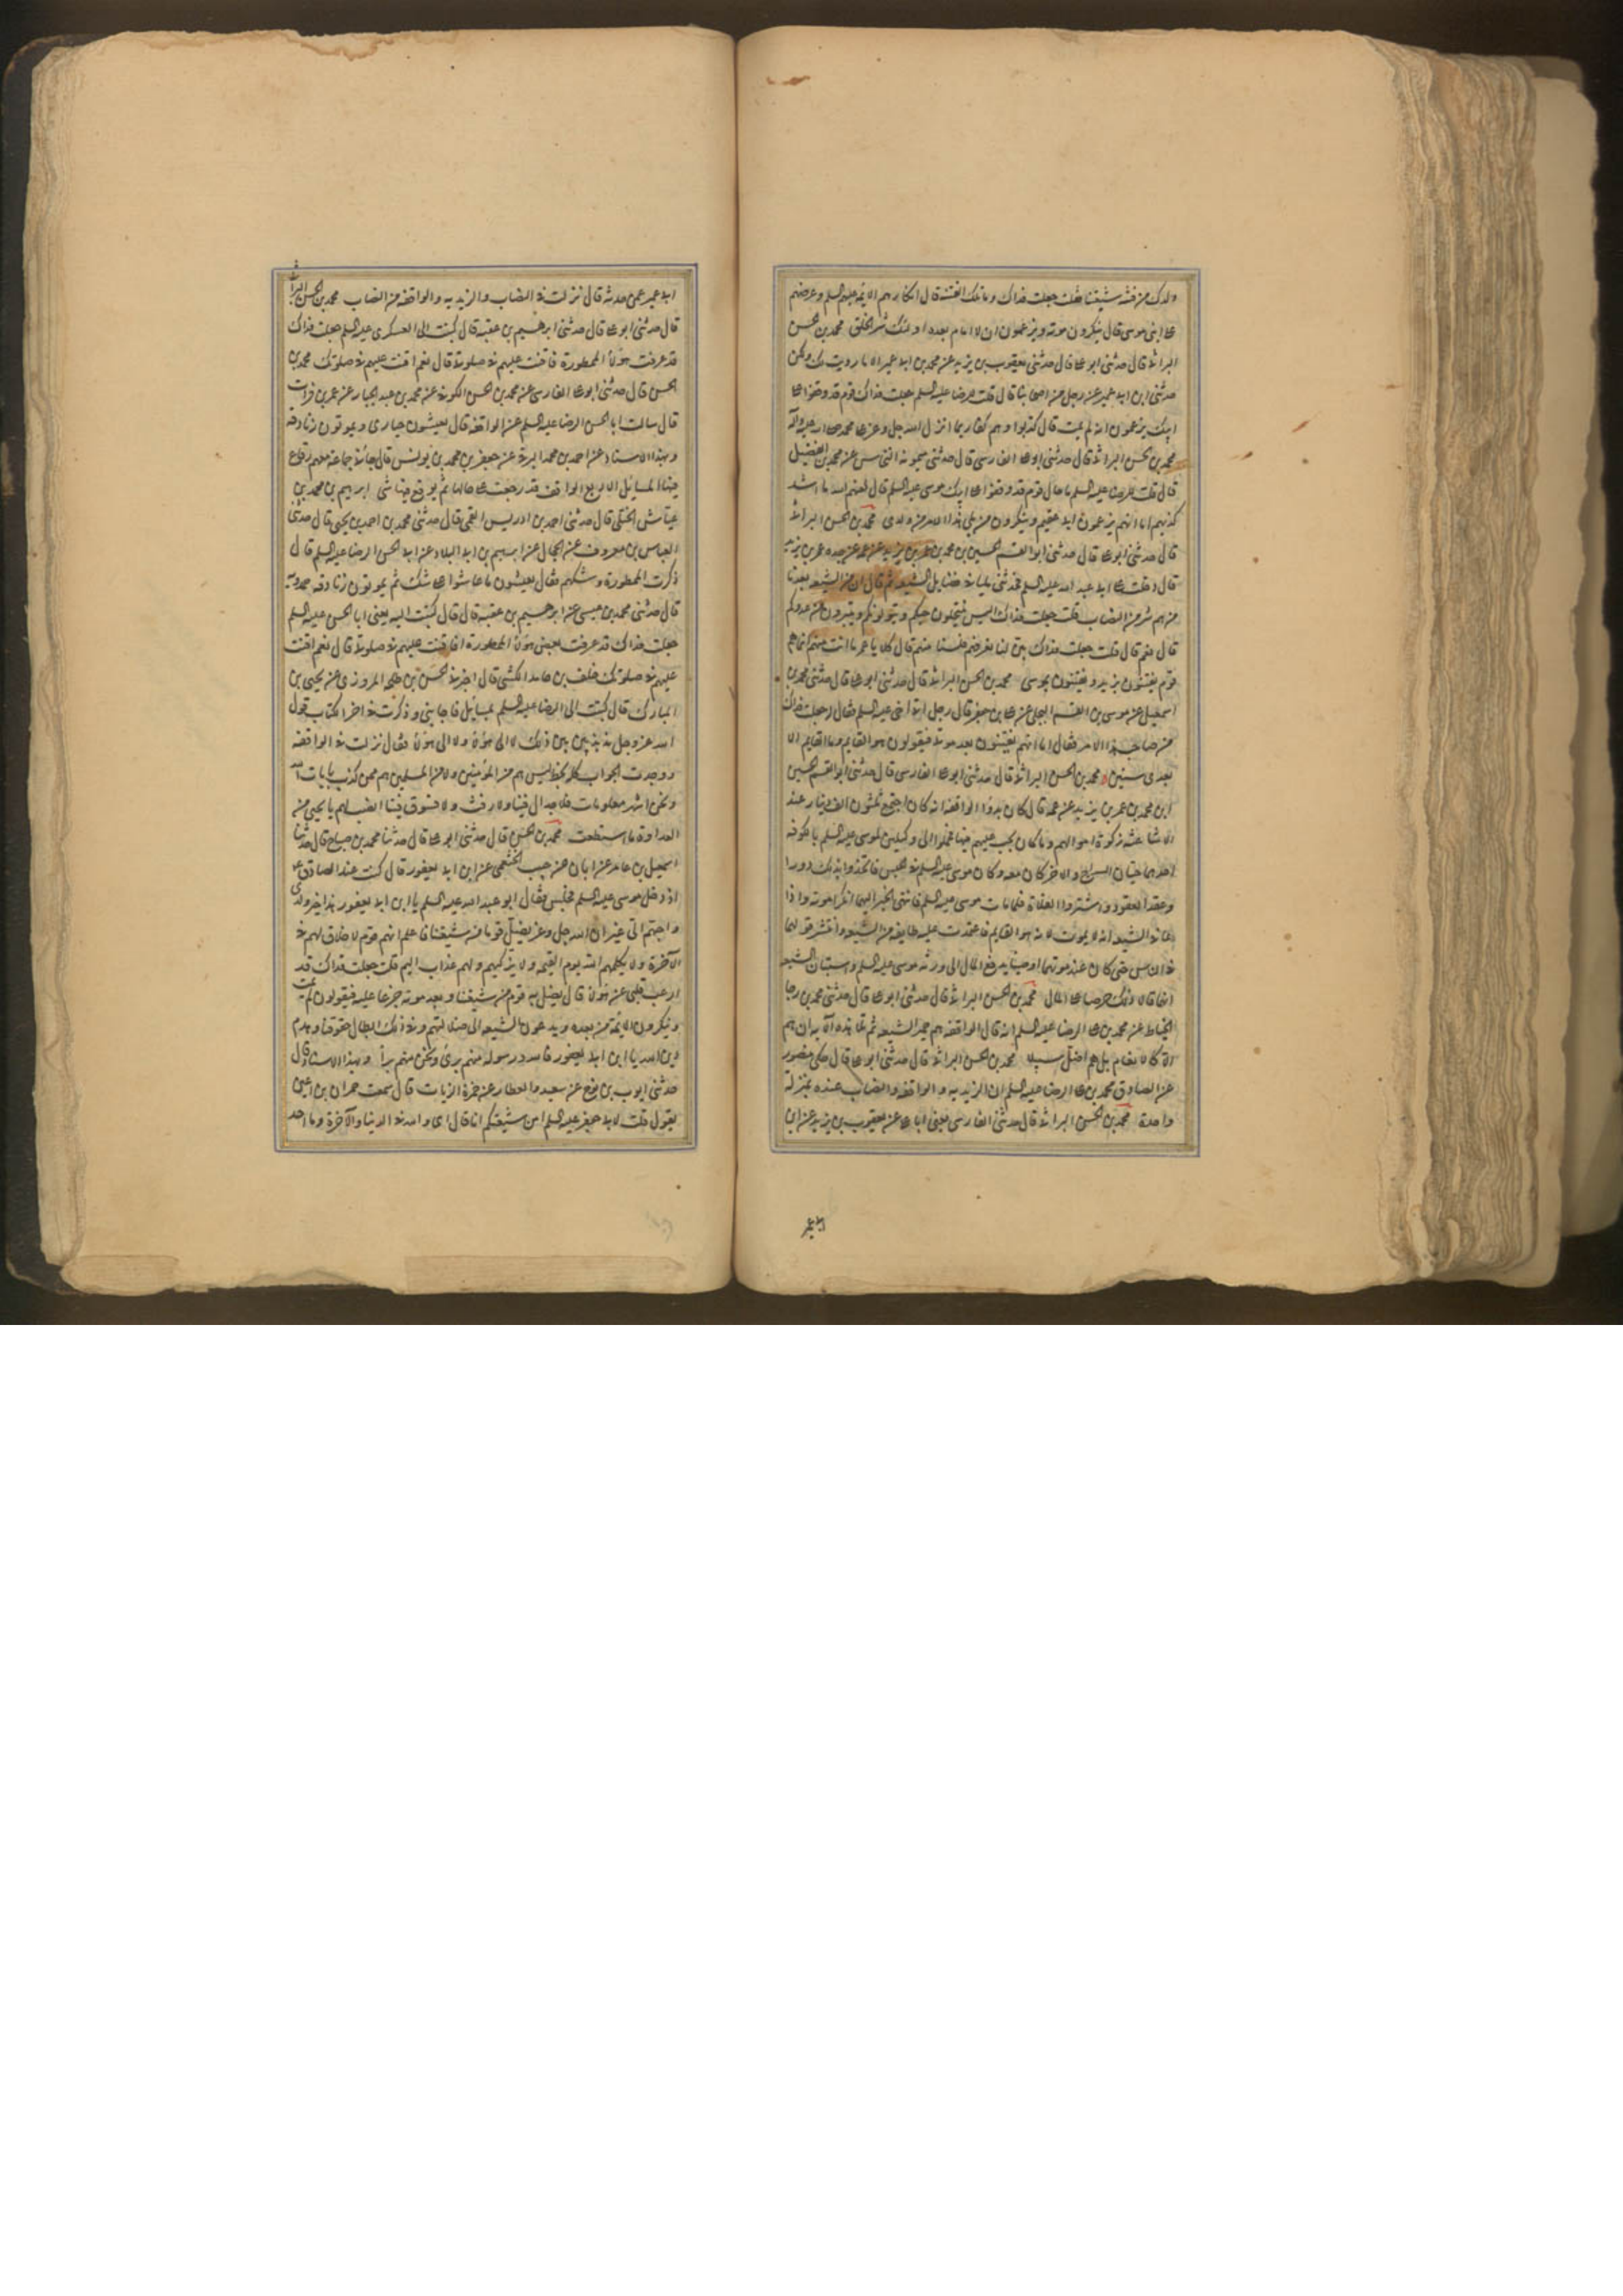 ولدك من فتنة شيعتنا فقلت جعلت فداك وما تلك الفتنة قال انكارهم الائمة عليهم السلم وعرضهم
على ابنى موسى قال ينكرون موته ويزعمون ان لا امام بعده اولئك شر الخلق محمد بن الحسن
البراثى قال حدثنى ابو على قال حدثنى يعقوب بن يزيد عن محمد بن ابى عمير الا ما رويت لك ولكن
حدثنى ابن ابى عمير عن رجل من اصحابنا قال قلت للرضا عليه السلم جعلت فداك قوم قد وقفوا على
ابيك يزعمون انه لم يمت قال كذبوا وهم كفار بما انزل الله جل وعز على محمد صلى الله عليه وآله
محمد بن الحسن البراثى قال حدثنى ابو على الفارسى قال حدثنى ميمونة النى سى عن محمد بن الفضيل
قال قلت للرضا عليه السلم ما حال قوم قد وقفوا على ابيك موسى عليه السلم قال لعنهم الله ما اشد
كذبهم اما انهم يزعمون انى عقيم وينكرون من يلى هذا الامر من ولدى محمد بن الحسن البراثى
قال حدثنى ابو على قال حدثنى ابو القسم الحسين بن محمد بن عمر بن يزيد عن عمه عن جده عمر بن يزيد
قال دخلت على ابى عبد الله عليه السلم فحدثنى مليا فى فضايل الشيعة ثم قال ان من الشيعة بعدنا
من هم شر من النصاب قلت جعلت فداك اليس ينتحلون حبكم ويتولونكم ويتبرون من عدوكم
قال نعم قال قلت جعلت فداك بين لنا نعرفهم فلسنا منهم قال كلا يا عمر ما انت منهم انما هم
قوم يفتنون بزيد ويفتنون بموسى محمد بن الحسن البراثى قال حدثنى ابو على قال حدثنى محمد بن
اسمعيل عن موسى بن القسم البجلى عن على بن جعفر قال رجل اتى اخى عليه السلم فقال له جعلت فداك
من صاحب هذا الامر فقال اما انهم يفتنون بعد موتى فيقولون هو القايم وما القايم الا
بعدى بسنين محمد بن الحسن البراثى قال حدثنى ابو على الفارسى قال حدثنى ابو القسم الحسين
ابن محمد بن عمر بن يزيد عن عمه قال كان بدؤ الواقفة انه كان اجتمع ثلثون الف دينار عند
الاشاعثة زكوة اموالهم وما كان يجب عليهم فيها فحملوا الى وكيلين لموسى عليه السلم بالكوفة
احدهما حيان السراج والاخر كان معه وكان موسى عليه السلم فى الحبس فاتخذوا بذلك دورا
وعقدا العقود واشتروا الغلات فلما مات موسى عليه السلم فانتهى الخبر اليهما انكرا موته واذا
عا فى الشيعة انه لا يموت لانه هو القايم فاعتمدت عليه طايفة من الشيعة وانتشر قولهما
فى الناس حتى كان عند موتهما اوصيا بدفع المال الى ورثة موسى عليه السلم واستبان الشيعة
انهما قالا ذلك حرصا على المال محمد بن الحسن البراثى قال حدثنى ابو على قال حدثنى محمد بن رجا
الحناط عن محمد بن على الرضا عليه السلم انه قال الواقفة هم حمير الشيعة ثم تلا هذه الآية ان هم
الا كالانعام بل هم اضل سبيلا محمد بن الحسن البراثى قال حدثنى ابو على قال حكى منصور
عن الصادق محمد بن على الرضا عليه السلم ان الزيدية والواقفة والنصاب عنده بمنزلة
واحدة محمد بن الحسن البراثى قال حدثنى الفارسى يعنى ابا على عن يعقوب بن يزيد عن ابن
ابى عمير
ابى عمير عمن حدثه قال نزلت فى النصاب والزيدية والواقفة من النصاب محمد بن الحسن البراثى
قال حدثنى ابو على قال حدثنى ابرهيم بن عقبة قال كتبت الى العسكرى عليه السلم جعلت فداك
قد عرفت هؤلاء الممطورة فاقنت عليهم فى صلوتى قال نعم اقنت عليهم فى صلوتك محمد بن
الحسن قال حدثنى ابو على الفارسى عن محمد بن الحسن الكوفى عن محمد بن عبد الجبار عن عمر بن فرات
قال سالت ابا الحسن الرضا عليه السلم عن الواقفة قال يعيشون حيارى ويموتون زنادقة
وبهذا الاسناد عن احمد بن محمد البرقى عن جعفر بن محمد بن يونس قال جاءنى جماعة معهم رقاع
فيها المسايل الا رقع الواقف قد رجعت على حالها لم يوقع فيها شى ابرهيم بن محمد بن
عباس الختلى قال حدثنى احمد بن ادريس القمى قال حدثنى محمد بن احمد بن يحيى قال حدثنى
العباس بن معروف عن الحجال عن ابرهيم بن ابى البلاد عن ابى الحسن الرضا عليه السلم قال
ذكرت الممطورة وشكهم فقال يعيشون ما عاشوا على شك ثم يموتون زنادقة حمدويه
قال حدثنى محمد بن عيسى عن ابرهيم بن عقبة قال قال كتبت اليه يعنى ابا الحسن عليه السلم
جعلت فداك قد عرفت بعض هؤلاء الممطورة افاقنت عليهم فى صلوتى قال نعم اقنت
عليهم فى صلوتك خلف بن حامد الكشى قال اخبرنى الحسن بن طلحة المروزى عن يحيى بن
المبارك قال كتبت الى الرضا عليه السلم بمسايل فاجابنى وذكرت فى اخر الكتاب قول
الله عز وجل مذبذبين بين ذلك لا الى هؤلاء ولا الى هؤلاء فقال نزلت فى الواقفة
ووجدت الجواب كله بخطه ليس هم من المؤمنين ولا من المسلمين هم ممن كذب بايات الله
ونحن اشهر معلومات فلا جدال فينا ولا رفث ولا فسوق فينا انصب لهم يا يحيى من
العداوة ما استطعت محمد بن الحسن قال حدثنى ابو على قال حدثنا محمد بن صباح قال حدثنا
اسمعيل بن عامر عن ابان عن حبيب الخثعمى عن ابن ابى يعفور قال كنت عند الصادق ع
اذ دخل موسى عليه السلم فجلس فقال ابو عبد الله عليه السلم يا ابن ابى يعفور هذا خير ولدى
واحبهم الى غير ان الله جل وعز يضل قوما من شيعتنا فاعلم انهم قوم لا خلاق لهم فى
الآخرة ولا يكلمهم الله يوم القيمة ولا يزكيهم ولهم عذاب اليم قلت جعلت فداك قد
ارعب قلبى عن هؤلاء قال يضل به قوم من شيعتنا وبعد موته جزعا عليه فيقولون لم يمت
وينكرون الائمة من بعده ويدعون الشيعة الى ضلالتهم وفى ذلك ابطال حقوقنا وهدم
دين الله يا ابن ابى يعفور فالله ورسوله منهم برئ ونحن منهم برآء وبهذا الاسناد قال
حدثنى ايوب بن نوح عن سعيد العطار عن حمزة الزيات قال سمعت حمران بن اعين
يقول قلت لابى جعفر عليه السلم امن شيعتكم انا قال اى والله فى الدنيا والآخرة وما احد